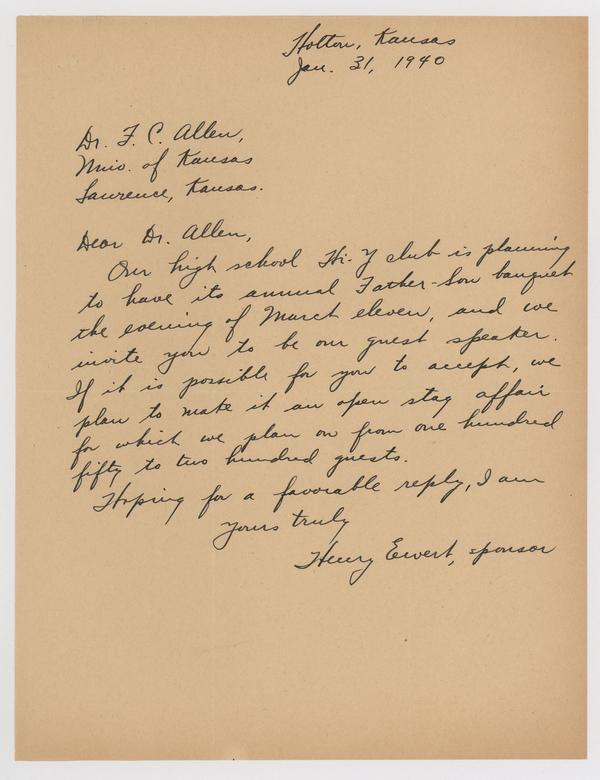 Holton, Kansas
Jan. 31, 1940
Dr. F. C. Allen,
Univ. of Kansas
Lawrence, Kansas.
Dear Dr. Allen,
Our high school Hi-Y club is planning
to have its annual Father-Son banquet
the evening of March eleven, and we
invite you to be our guest speaker.
If it is possible for you to accept, we
plan to make it an open stag affair
for which we plan on from one hundred
fifty to two hundred guests.
Hoping for a favorable reply, I am
Yours truly
Henry Ewert, sponsor